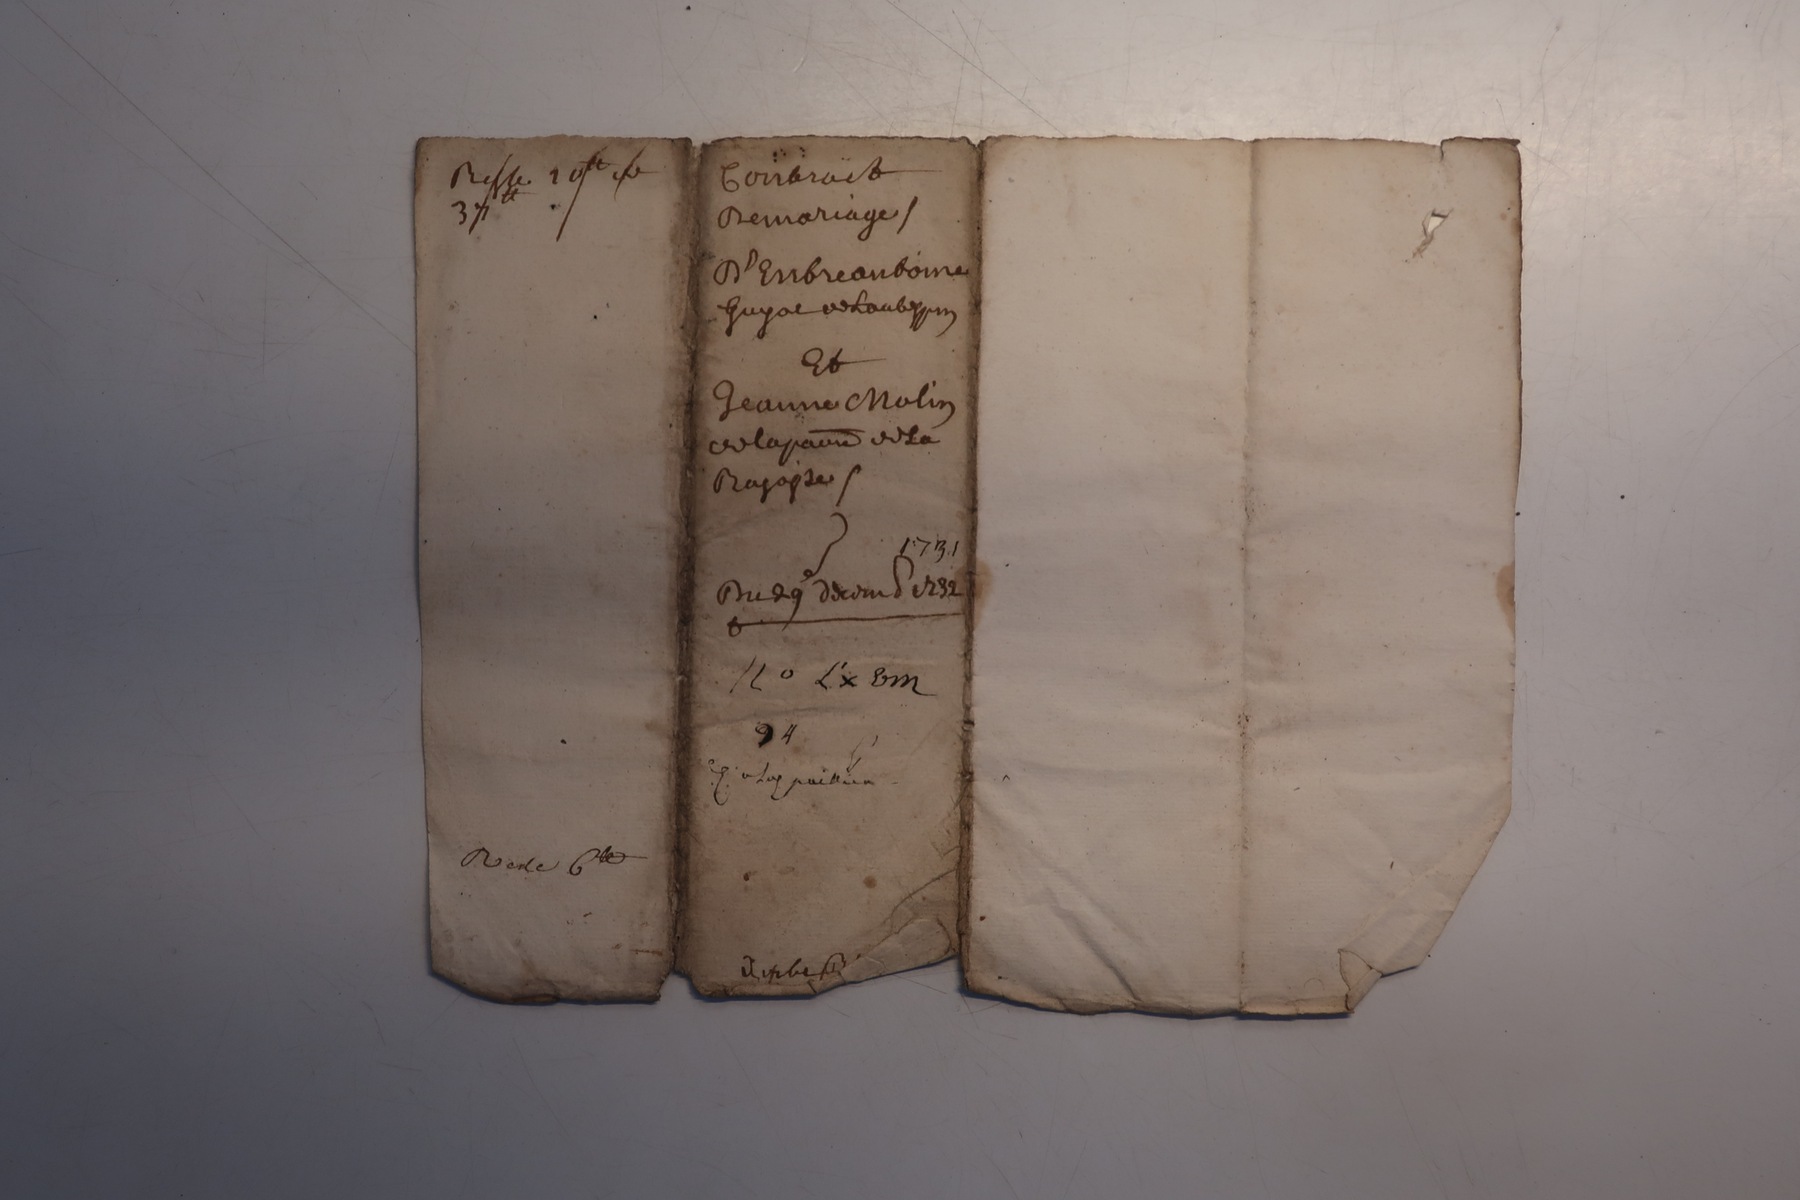 Reste 10tt
37tt
Contract
De mariage
D'Entre antoine
Guyot de Laubeppin
Et
Jeanne Molin
de la parr de La
Rajasse
1731
Du 29e décemb 1732
N° Lxvm
94
Reste 6tt